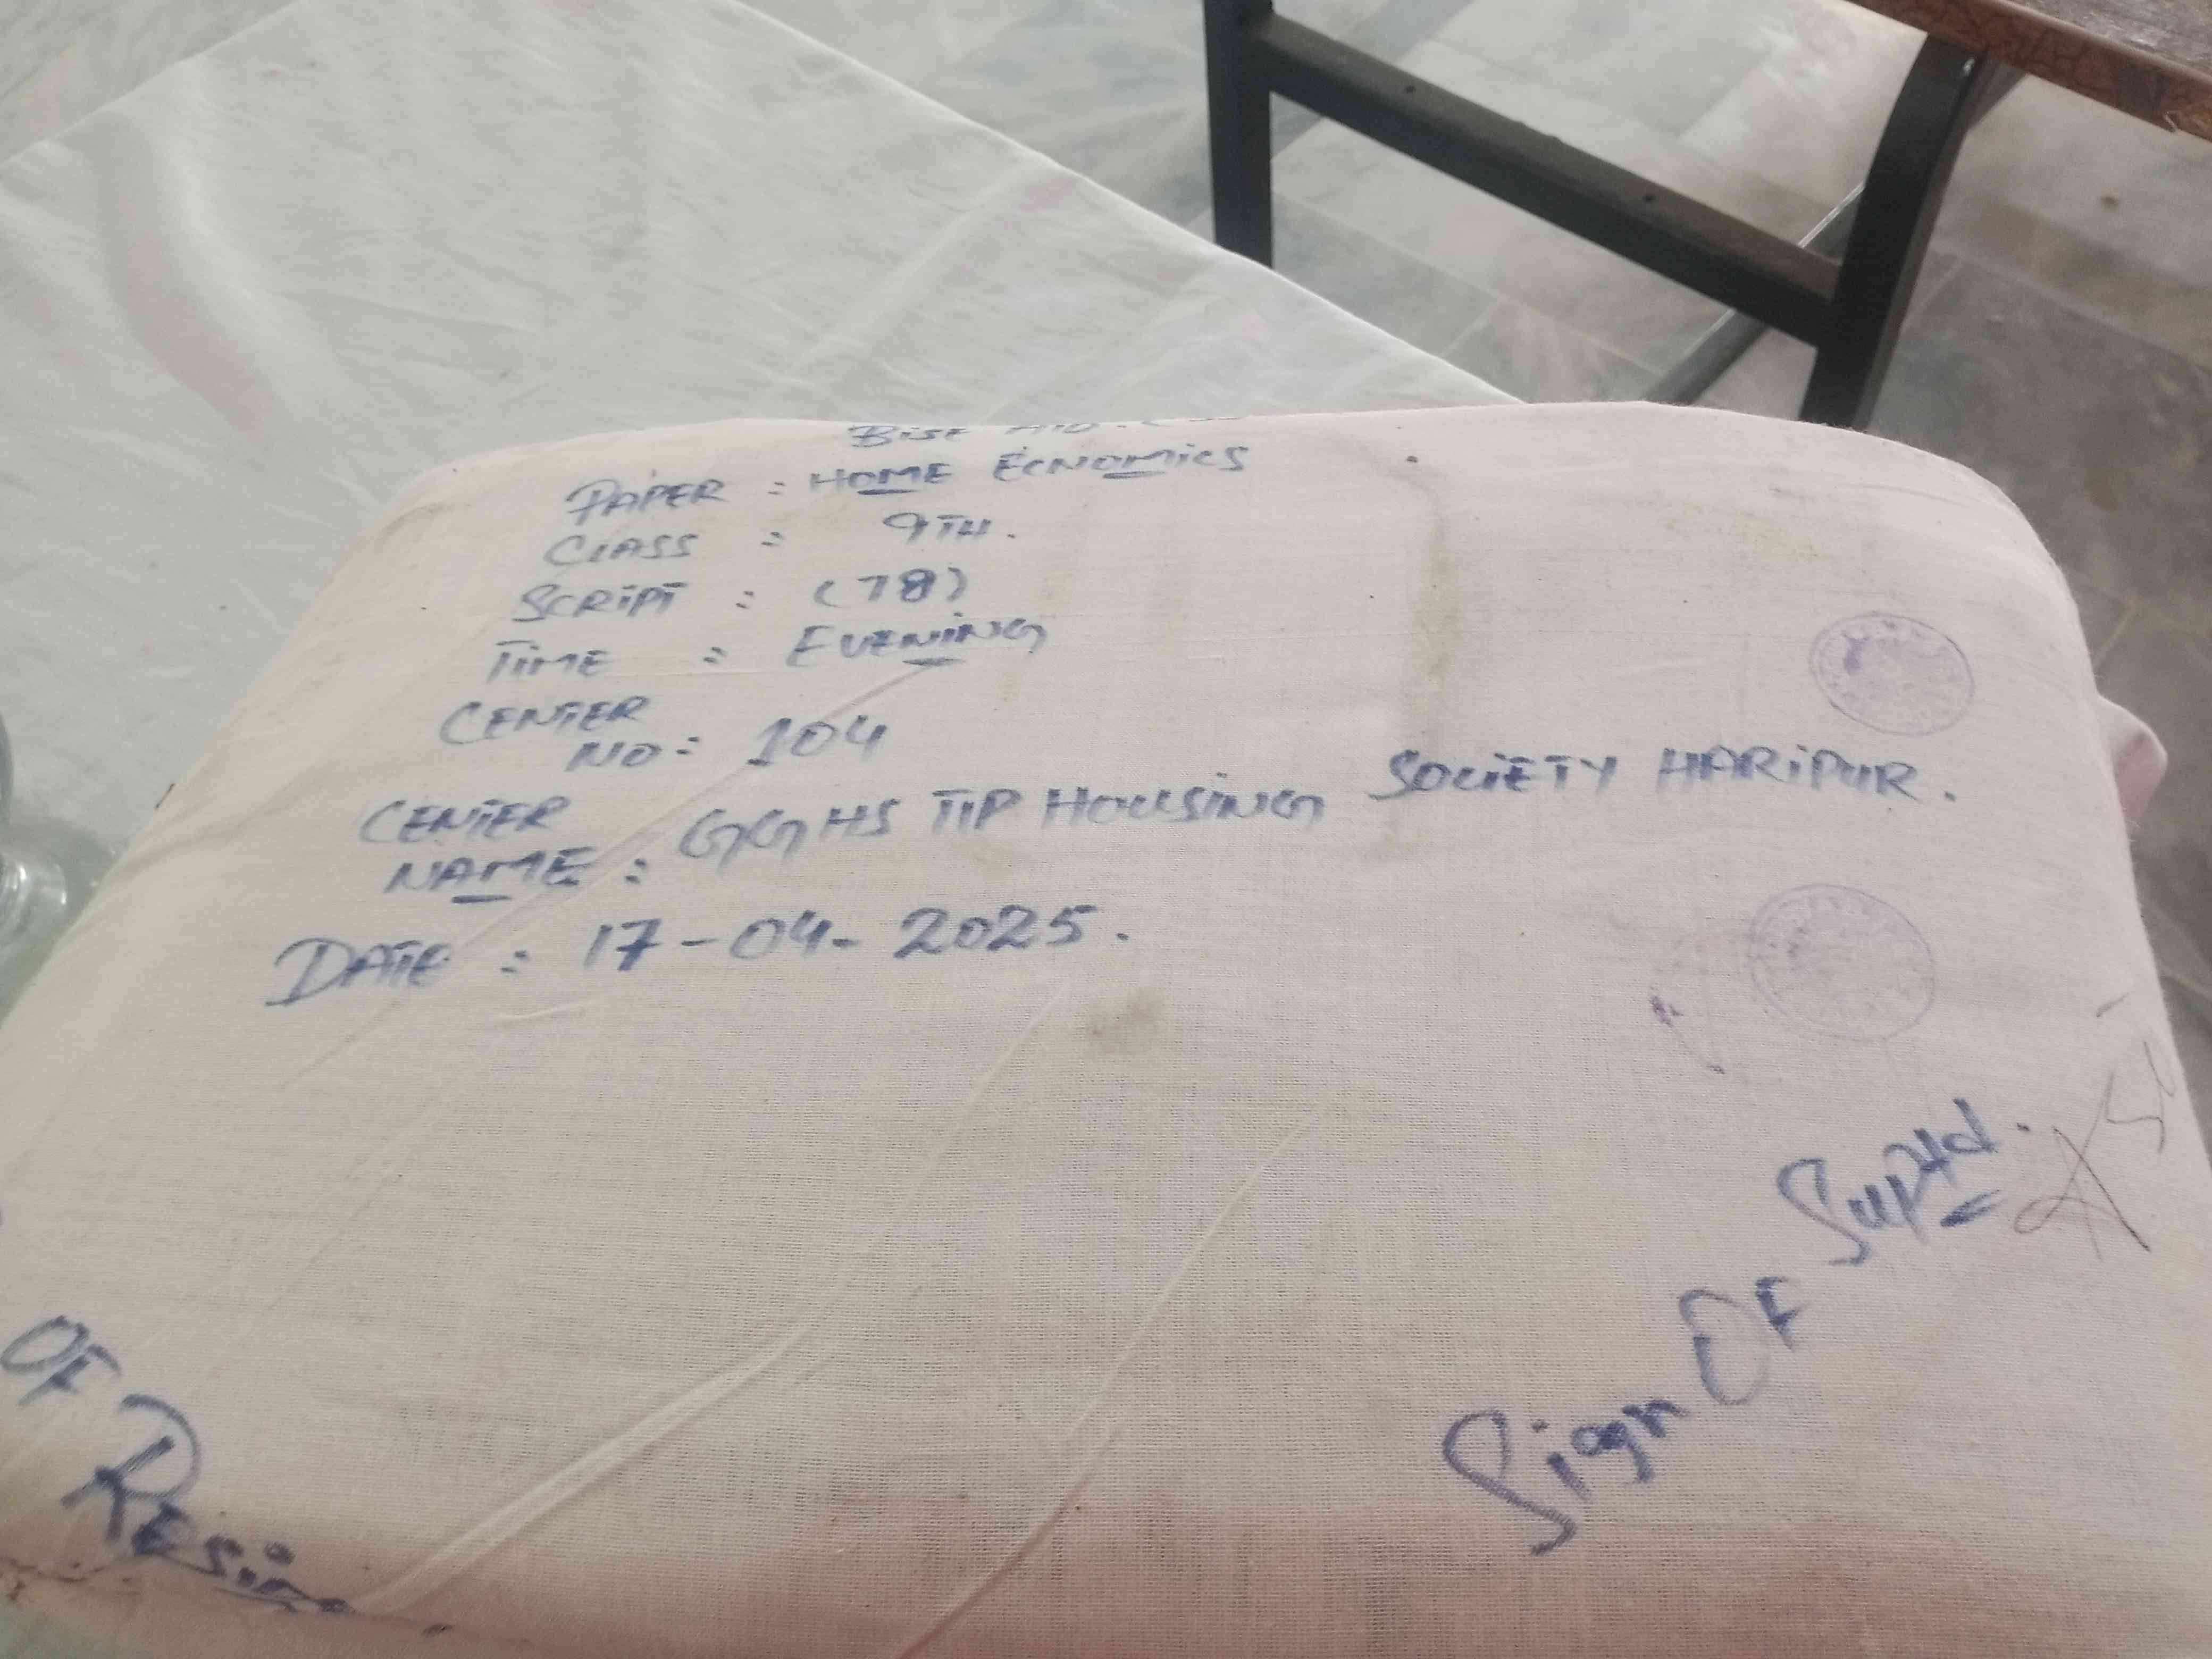 BISE
PAPER : HOME ECNOMICS
CLASS : 9TH.
SCRIPT : (78)
TIME : EVENING
CENTER
NO: 104
CENTER
NAME : GGHS TIP HOUSING SOCIETY HARIPUR.
DATE : 17-04-2025.
Sign OF Suptd.
OF